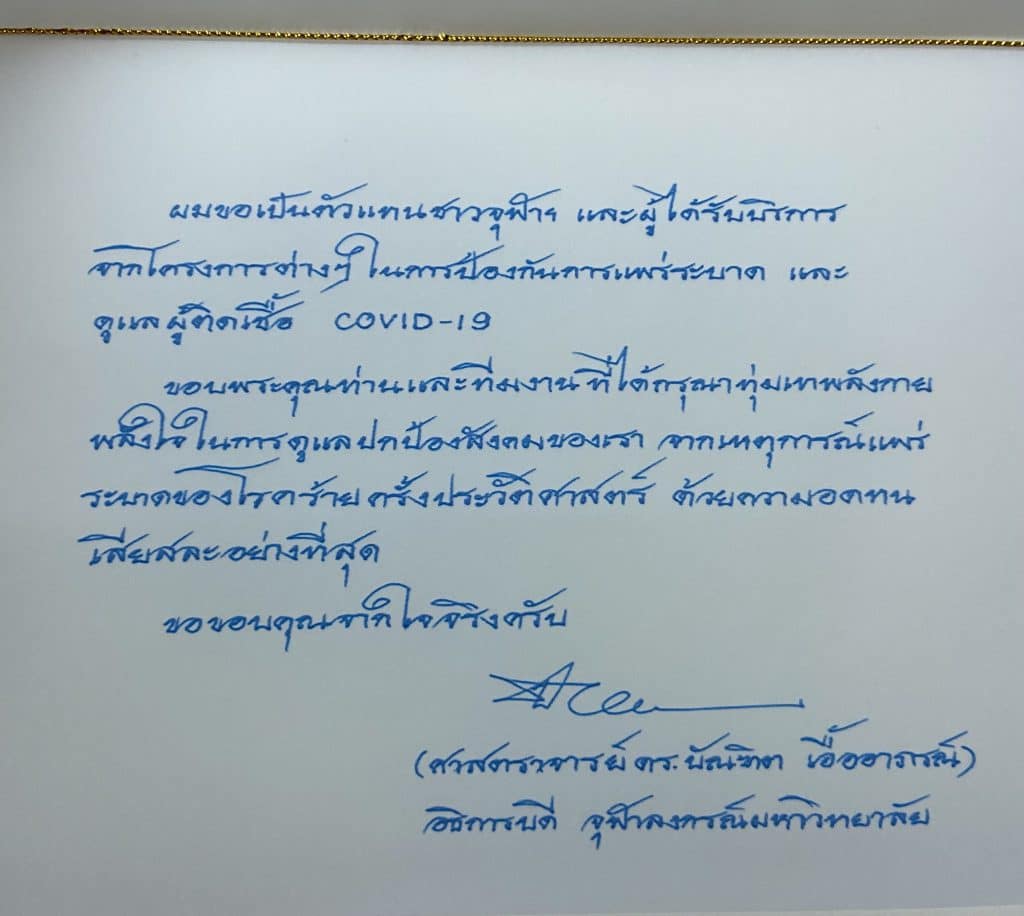 ผมขอเป็นตัวแทนชาวจุฬาฯ และผู้ได้รับบริการ
จากโครงการต่างๆ ในการป้องกันการแพร่ระบาด และ
ดูแลผู้ติดเชื้อ COVID-19
ขอบพระคุณท่านและทีมงานที่ได้กรุณาทุ่มเทพลังกาย
พลังใจในการดูแลปกป้องสังคมของเรา จากเหตุการณ์แพร่
ระบาดของโรคร้ายครั้งประวัติศาสตร์ ด้วยความอดทน
เสียสละอย่างที่สุด
ขอขอบคุณจากใจจริงครับ
(ศาสตราจารย์ ดร.บัณฑิต เอื้ออาภรณ์)
อธิการบดี จุฬาลงกรณ์มหาวิทยาลัย